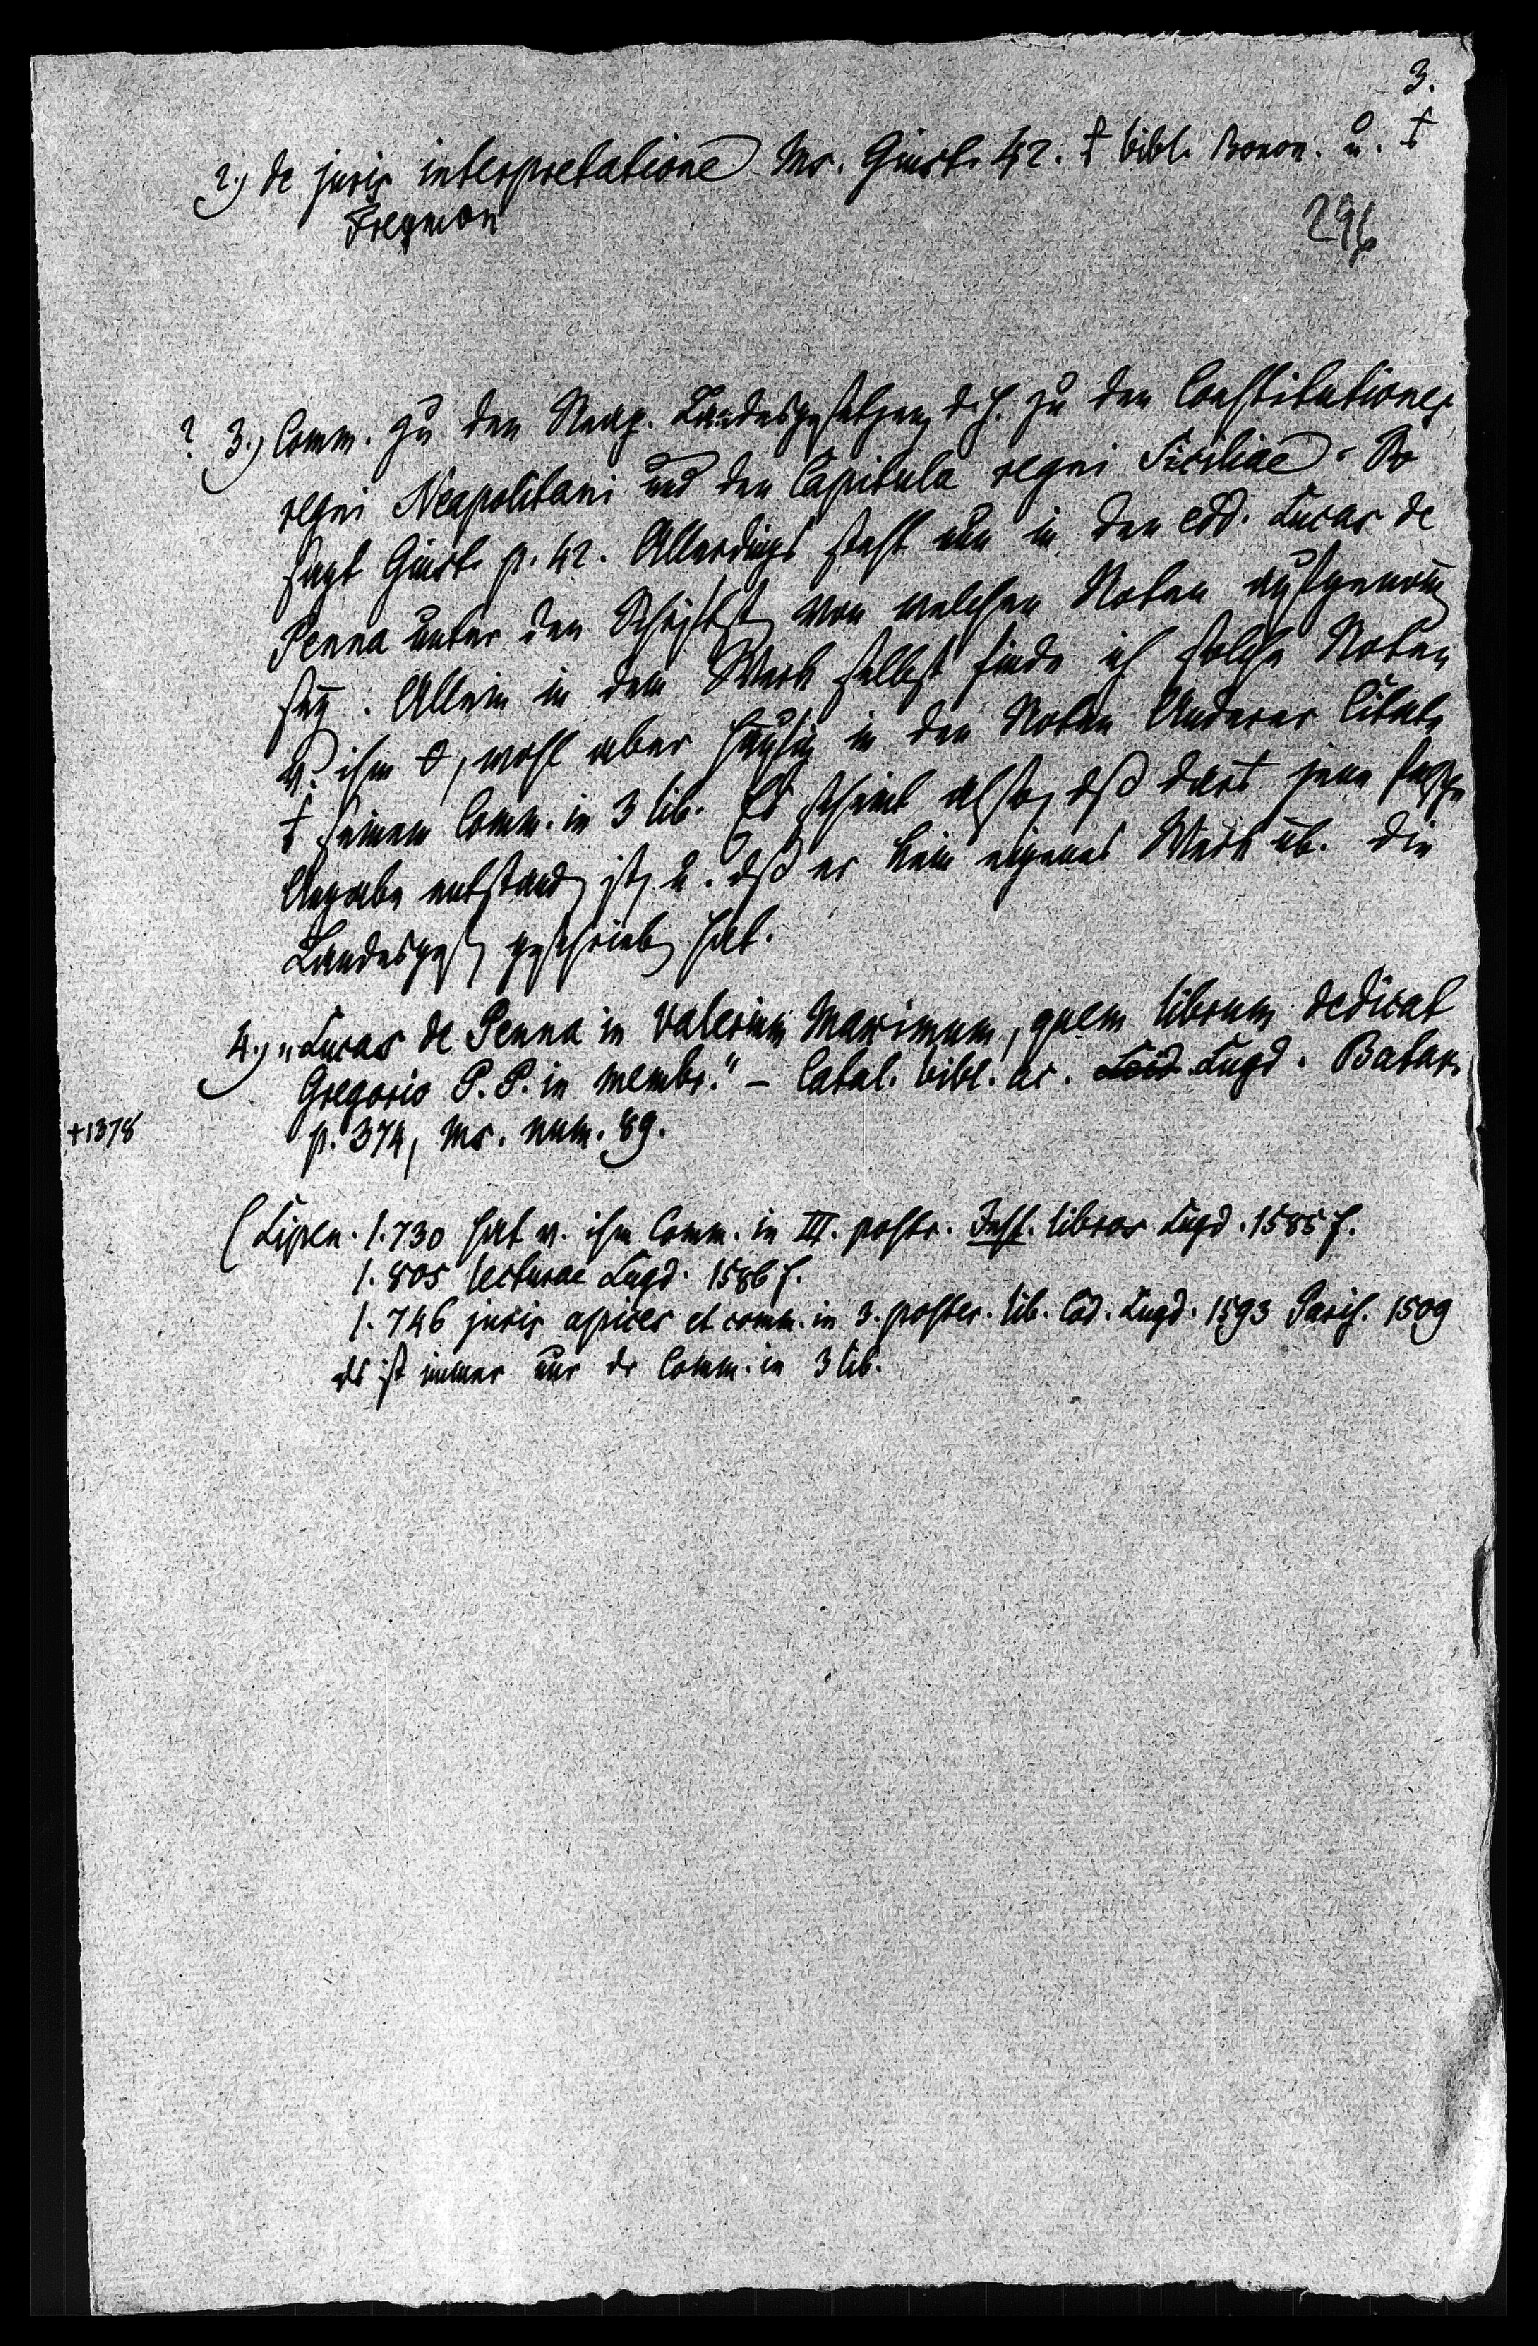 3.
2.) de juris interpretatione Ms. Giust. 42. † bibl. Bonon. u. †
Fregmon
296
? 3.) Comm. zu den Neap. Landesgesetzen, d. h. zu den Constitutiones
regni Neapolitani und den Capitula regni Siciliae. So
sagt Giust. p. 42. Allerdings steht nun in den edd. Lucas de
Penna unter den Schriftst von welchen Noten aufgenom
sey. Allein in dem Werk selbst finde ich solche Noten
v. ihm 0, wohl aber häufig in den Noten Anderer Citate
† seinem Comm. in 3 lib. Es scheint also, dß dart jene falsche
Angabe entstand ist, u. dß er kein eigenes Werk üb. die
Landesges geschrieb hat.
4.) "Lucas de Penna in Valerium Maximum, quem librum dedicat
Gregorio P. P. in membr." – Catal. bibl. ac. Leid Lugd. Batav.
+1378 p. 374, Ms. num. 89.
(Lipen. 1.730 hat v. ihm Comm. in III. postr. Inst. libros Lugd. 1585 f.
1. 805 lecturae Lugd. 1586 f.
1. 746 juris apices et comm. in 3. poster. lib. Cod. Lugd. 1593 Paris. 1509
ds ist immer nur dr Comm. in 3 lib.